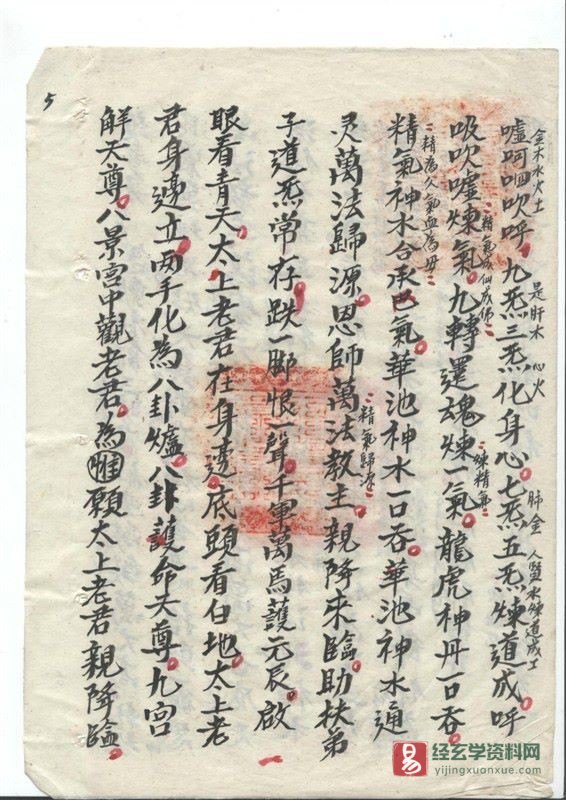 金木水火土 是肝木 心火 肺金
噓呵呬吹呼九炁三炁化身心七炁五炁煉道成呼
精氣成仙成佛 練精氣
吸吹噓煉氣九轉還魂煉一氣龍虎神丹一口吞
精為父氣血為母
精氣神水合承巴氣華池神水一口吞華池神水通
精氣歸源
灵萬法歸源恩師萬法教主親降來臨助扶弟
子道炁常存跌一腳恨一聲千軍萬馬護元辰啟
眼看青天太上老君在身邊底頭看白地太上老
君身邊立兩手化為八卦爐八卦護命天尊九宮
解天尊八景宮中觀老君為惟願太上老君親降臨
5
易 经玄学资料网
yijingxuanxue.com